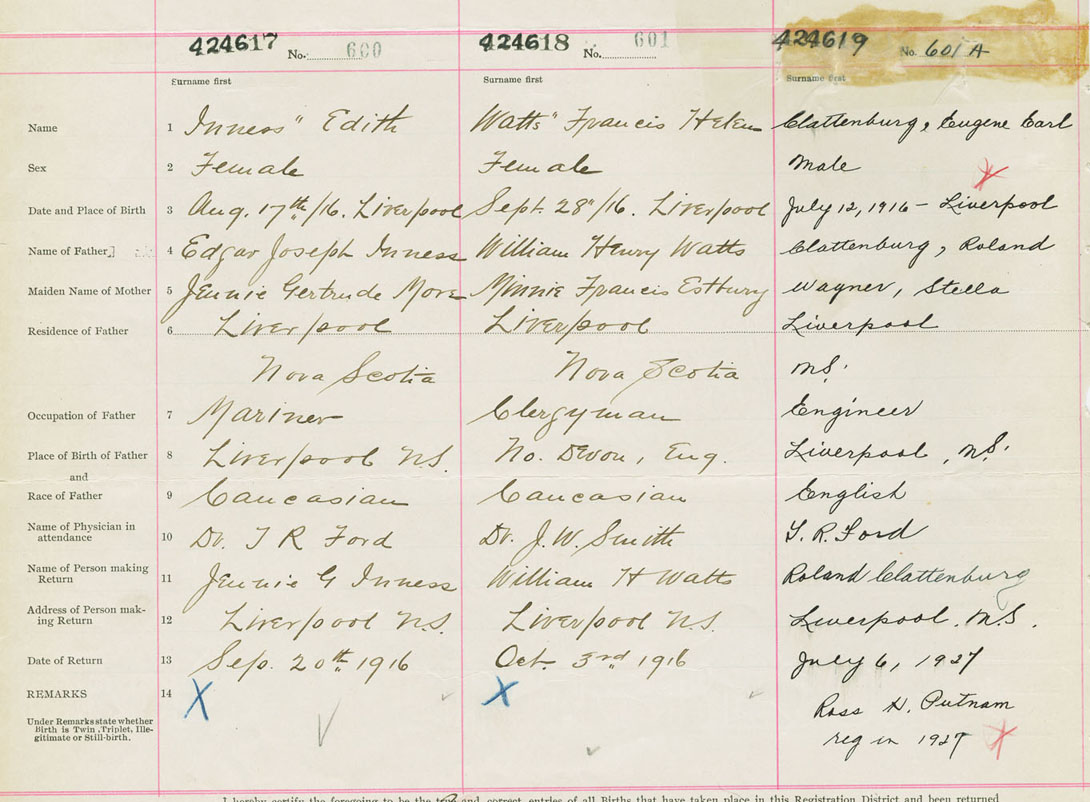 424617 No. 600 424618 No. 601 424619 No. 601 A
Surname first Surname first Surname first
Name 1 Inness" Edith Watts" Francis Helen Clattenburg, Eugene Earl
Sex 2 Female Female Male
Date and Place of Birth 3 Aug. 17th/16. Liverpool Sept. 28"/16. Liverpool July 12, 1916 - Liverpool
Name of Father 4 Edgar Joseph Inness William Henry Watts Clattenburg, Roland
Maiden Name of Mother 5 Jennie Gertrude More Minnie Francis Estbury Wagner, Stella
Residence of Father 6 Liverpool Liverpool Liverpool
Nova Scotia Nova Scotia N.S.
Occupation of Father 7 Mariner Clergyman Engineer
Place of Birth of Father 8 Liverpool N.S. No. Devon, Eng. Liverpool, N.S.
and
Race of Father 9 Caucasian Caucasian English
Name of Physician in
attendance 10 Dr. T R Ford Dr. J. W. Smith T. R. Ford
Name of Person making
Return 11 Jennie G Inness William H Watts Roland Clattenburg
Address of Person mak-
ing Return 12 Liverpool N.S. Liverpool N.S. Liverpool. N.S.
Date of Return 13 Sep. 20th 1916 Oct. 3rd 1916 July 6, 1927
REMARKS 14 X X Ross H. Putnam
Under Remarks state whether
Birth is Twin, Triplet, Ille-
gitimate or Still-birth.
reg in 1927
I hereby certify the foregoing to be the true and correct entries of all Births that have taken place in this Registration District and been returned